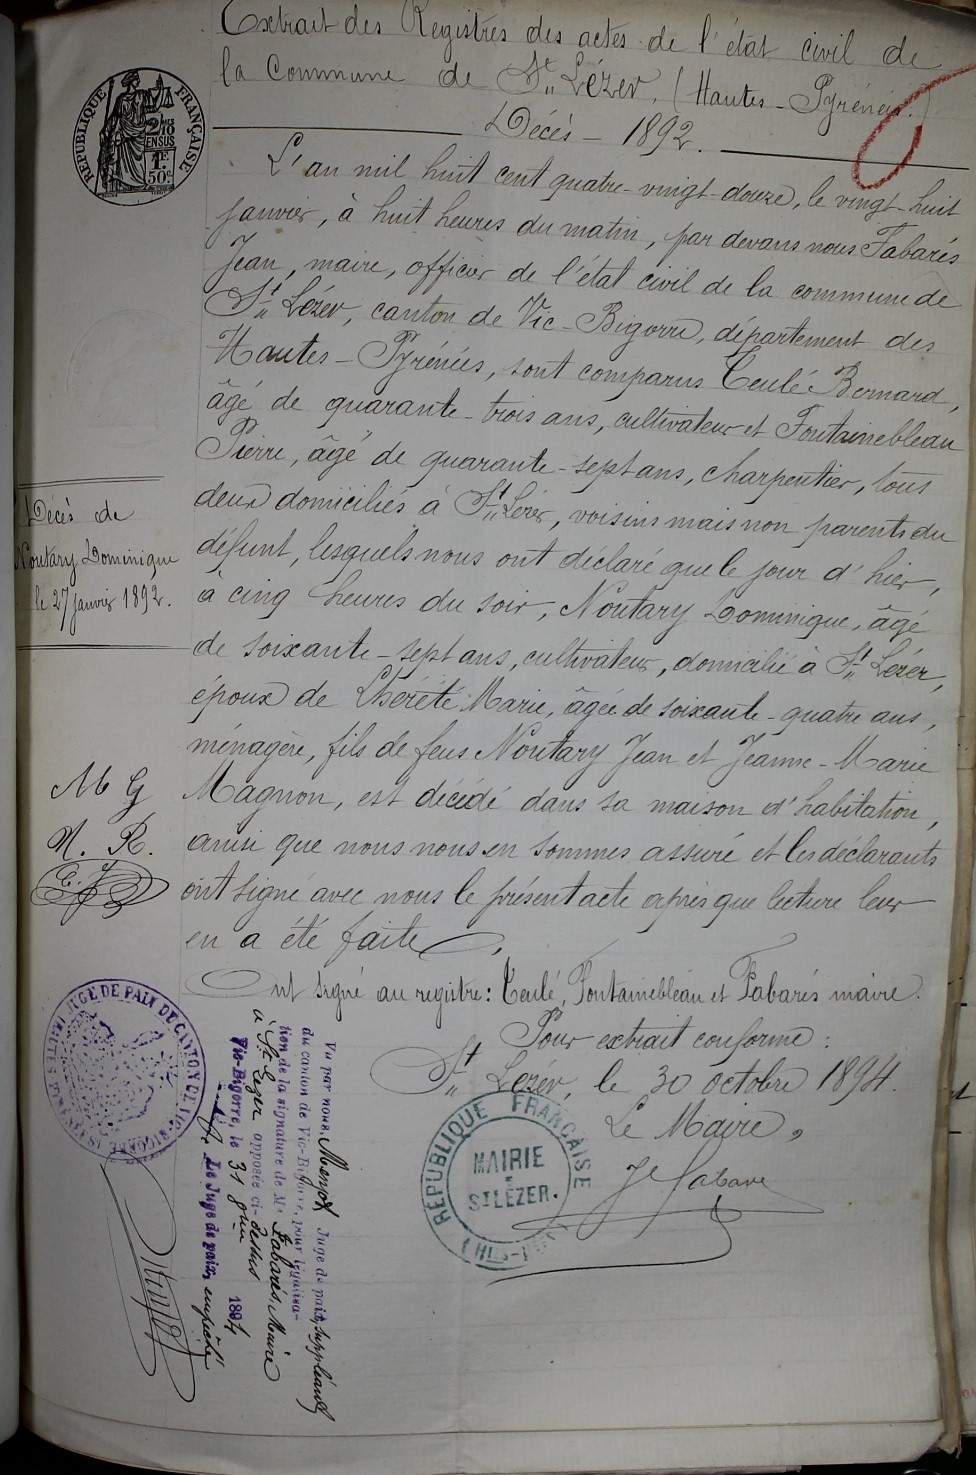 Extrait des Registres des actes de l'état civil de
la Commune de St Lézer, (Hautes-Pyrénées.)
Décès - 1892.
RÉPUBLIQUE FRANÇAISE
2/10 EN SUS
1F 50c
L'an mil huit cent quatre-vingt-douze, le vingt-huit
janvier, à huit heures du matin, par devans nous Fabarés
Jean, maire, officier de l'état civil de la commune de
St Lézer, canton de Vic-Bigorre, département des
Hautes-Pyrénées, sont comparus Ceulé Bernard,
âgé de quarante-trois ans, cultivateur et Fontainebleau
Pierre, âgé de quarante-sept ans, charpentier, tous
deux domiciliés à St Lézer, voisins mais non parents du
défunt, lesquels nous ont déclaré que le jour d'hier,
à cinq heures du soir, Noutary Dominique, âgé
de soixante-sept ans, cultivateur, domicilié à St Lézer,
époux de Lhérété Marie, âgée de soixante-quatre ans,
ménagère, fils de feus Noutary Jean et Jeanne-Marie
Magnon, est décédé dans sa maison d'habitation,
ainsi que nous nous en sommes assuré et les déclarants
ont signé avec nous le présent acte après que lecture leur
en a été faite.
Décès de
Noutary Dominique
le 27 janvier 1892.
M G
N. R.
Ont signé au registre: Ceulé, Fontainebleau et Fabarés maire.
Pour extrait conforme:
St Lézer, le 30 octobre 1894.
Le Maire,
J Fabare
RÉPUBLIQUE FRANÇAISE
MAIRIE
ST LÉZER.
(Htes-Pyr)
JUGE DE PAIX DU CANTON DE VIC-BIGORRE
Vu par nous, Menjot Juge de paix, suppléant
du canton de Vic-Bigorre, pour légalisa-
tion de la signature de M. Fabarés, Maire
à St Lézer apposée ci-dessus
Vic-Bigorre, le 31 8bre 1894
Le Juge de paix, empêché
Menjot